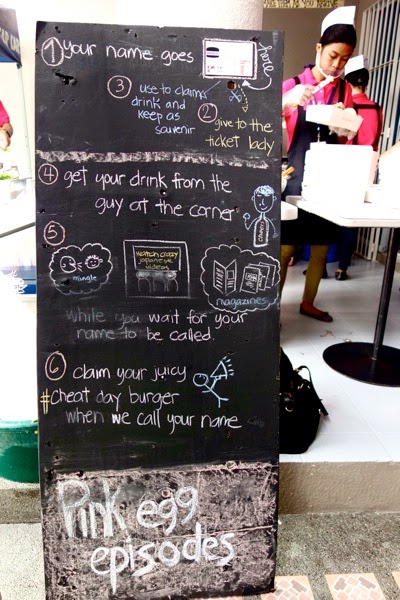 1 your name goes here
3 use to claim
drink and
keep as
souvenir
2 give to the
ticket lady
4 get your drink from the
guy at the corner
5
mingle
watch crazy
japanese
videos
magazines
while you wait for your
name to be called.
6 claim your juicy
#cheat day burger
when we call your name
Pink egg
episodes